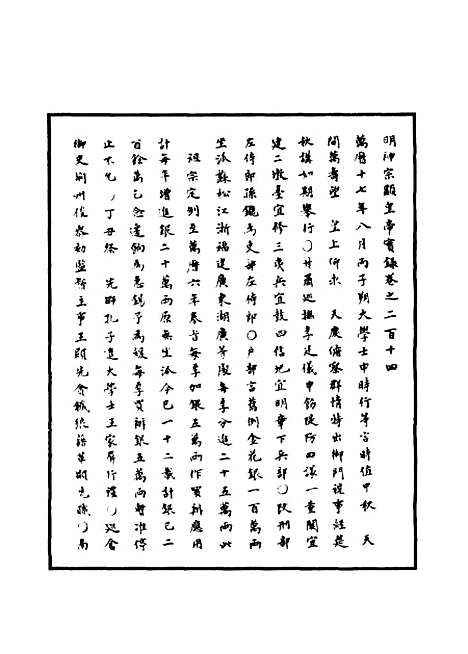 明神宗顯皇帝實錄卷之二百十四
萬曆十七年八月丙子朔大學士申時行等言時值中秋 天
間萬壽望 皇上仰承 天慶俯察群情特出御門視事經筵
秋講如期舉行○甘肅巡撫李廷儀申飭隄防四議一重關宜
建二墩臺宜修三夷兵宜設四信地宜明章下兵部○改刑部
左侍郎孫鑨為吏部左侍郎○戶部言舊例金花銀一百萬兩
坐派蘇松江浙福建廣東湖廣等處每季分進二十五萬兩此
祖宗定例至萬曆六年奉旨每季加銀五萬兩作買辦應用
計每年增進銀二十萬兩原無坐派今已一十二載計銀已二
百餘萬乞念邊餉為急錫予為緩每季買辦銀五萬兩暫准停
止不允○丁丑祭 先師孔子遣大學士王家屏行禮○巡倉
御史荊州俊參劾監督主事王